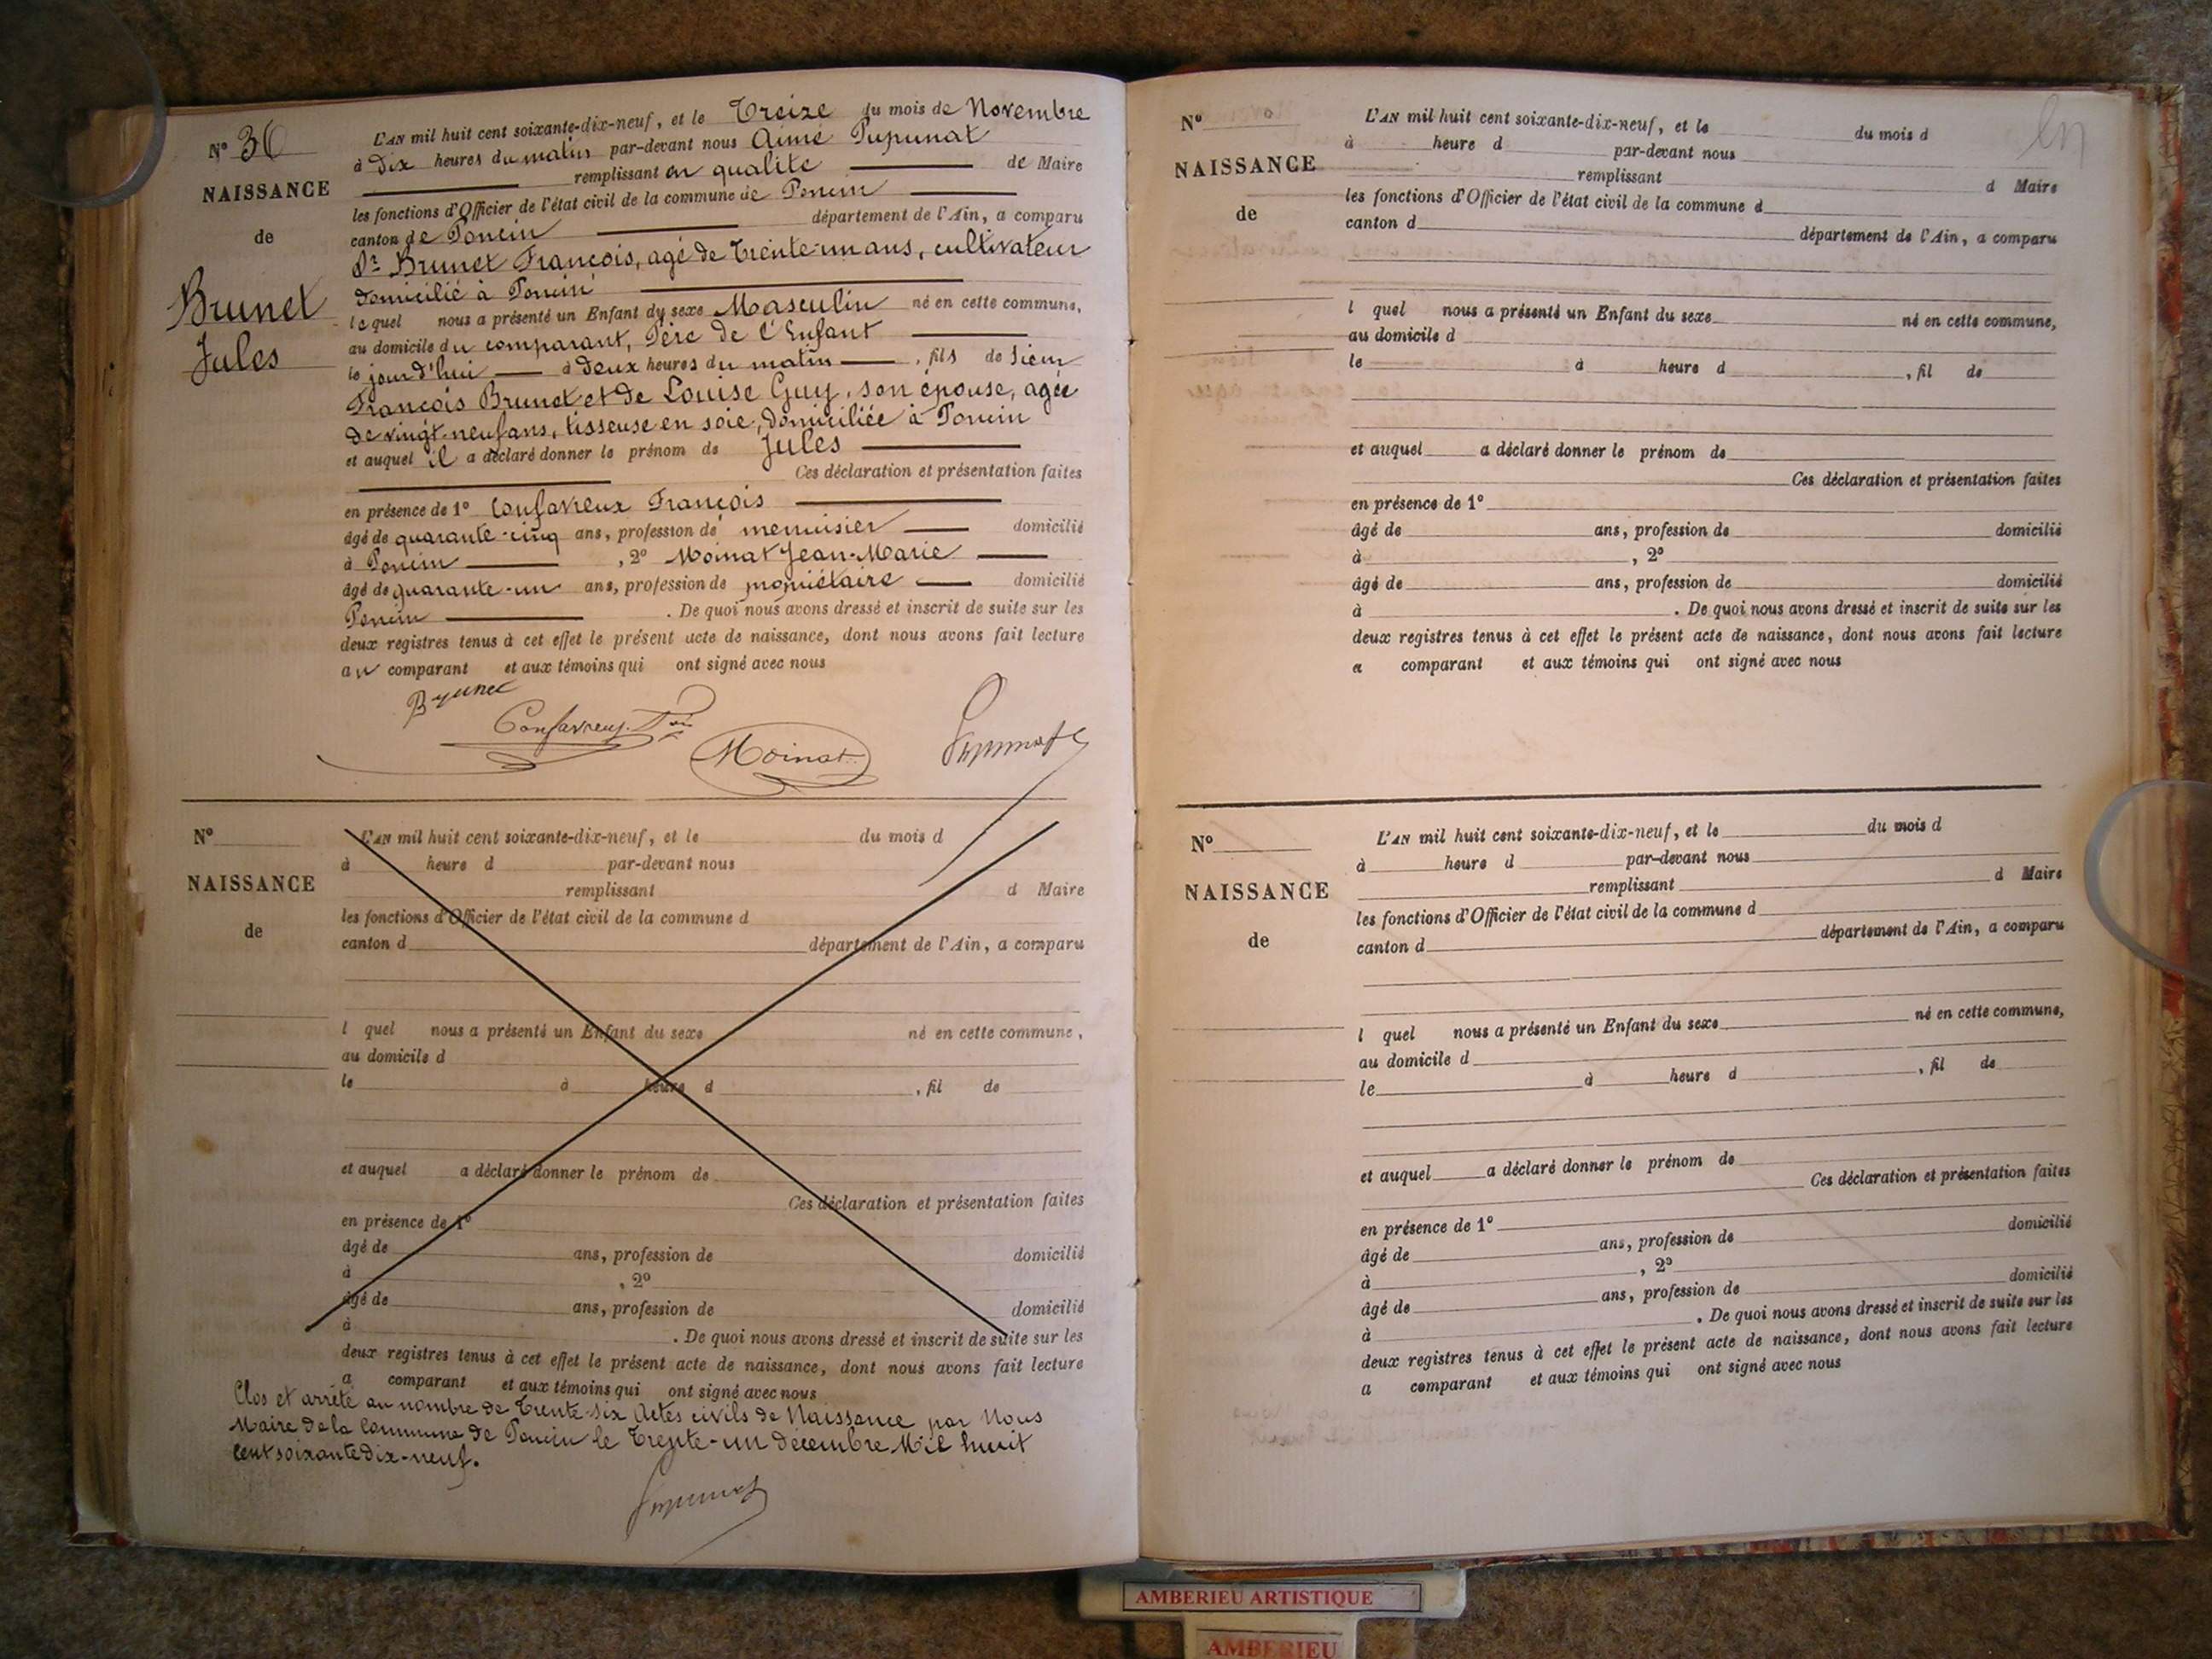 N° 36
NAISSANCE
de
Brunet
Jules
L'AN mil huit cent soixante-dix-neuf, et le Treize du mois de Novembre
à dix heures du matin par-devant nous Aimé Pupunat
remplissant en qualité de Maire
les fonctions d'Officier de l'état civil de la commune de Poncin
canton de Poncin département de l'Ain, a comparu
Sr Brunet François, agé de trente-un ans, cultivateur
domicilié à Poncin
lequel nous a présenté un Enfant du sexe Masculin né en cette commune,
au domicile du comparant, Père de l'Enfant
le jourd'hui à deux heures du matin, fils de Sieur
François Brunet et de Louise Guy, son épouse, agée
de vingt-neuf ans, tisseuse en soie, domiciliée à Poncin
et auquel il a déclaré donner le prénom de Jules
Ces déclaration et présentation faites
en présence de 1° Confavreux François
âgé de quarante-cinq ans, profession de menuisier domicilié
à Poncin, 2° Moinat Jean-Marie
âgé de quarante-un ans, profession de propriétaire domicilié
Poncin. De quoi nous avons dressé et inscrit de suite sur les
deux registres tenus à cet effet le présent acte de naissance, dont nous avons fait lecture
au comparant et aux témoins qui ont signé avec nous
Brunet
Confavreux
Moinat
Pupunat
N°
NAISSANCE
de
L'AN mil huit cent soixante-dix-neuf, et le du mois d
à heure d par-devant nous
remplissant d Maire
les fonctions d'Officier de l'état civil de la commune d
canton d département de l'Ain, a comparu
l quel nous a présenté un Enfant du sexe né en cette commune,
au domicile d
le à heure d , fil de
et auquel a déclaré donner le prénom de
Ces déclaration et présentation faites
en présence de 1°
âgé de ans, profession de domicilié
à , 2°
âgé de ans, profession de domicilié
à . De quoi nous avons dressé et inscrit de suite sur les
deux registres tenus à cet effet le présent acte de naissance, dont nous avons fait lecture
a comparant et aux témoins qui ont signé avec nous
Clos et arrêté au nombre de Trente-six Actes civils de Naissance par Nous
Maire de la Commune de Poncin le Trente-un décembre Mil huit
cent soixante dix-neuf.
Pupunat
N°
NAISSANCE
de
L'AN mil huit cent soixante-dix-neuf, et le du mois d
à heure d par-devant nous
remplissant d Maire
les fonctions d'Officier de l'état civil de la commune d
canton d département de l'Ain, a comparu
l quel nous a présenté un Enfant du sexe né en cette commune,
au domicile d
le à heure d , fil de
et auquel a déclaré donner le prénom de
Ces déclaration et présentation faites
en présence de 1°
âgé de ans, profession de domicilié
à , 2°
âgé de ans, profession de domicilié
à . De quoi nous avons dressé et inscrit de suite sur les
deux registres tenus à cet effet le présent acte de naissance, dont nous avons fait lecture
a comparant et aux témoins qui ont signé avec nous
N°
NAISSANCE
de
L'AN mil huit cent soixante-dix-neuf, et le du mois d
à heure d par-devant nous
remplissant d Maire
les fonctions d'Officier de l'état civil de la commune d
canton d département de l'Ain, a comparu
l quel nous a présenté un Enfant du sexe né en cette commune,
au domicile d
le à heure d , fil de
et auquel a déclaré donner le prénom de
Ces déclaration et présentation faites
en présence de 1°
âgé de ans, profession de domicilié
à , 2°
âgé de ans, profession de domicilié
à . De quoi nous avons dressé et inscrit de suite sur les
deux registres tenus à cet effet le présent acte de naissance, dont nous avons fait lecture
a comparant et aux témoins qui ont signé avec nous
AMBERIEU ARTISTIQUE
AMBERIEU